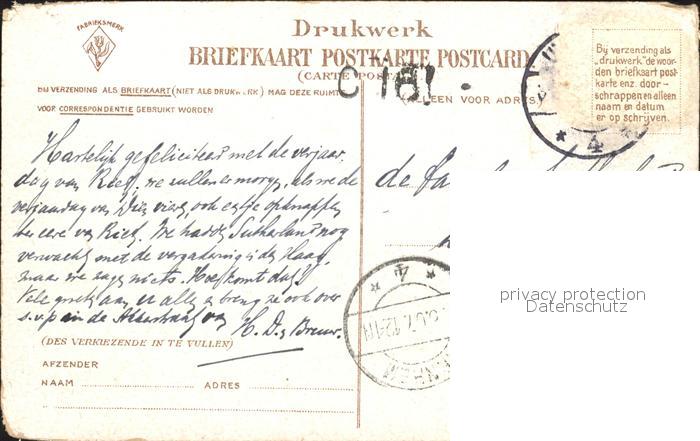 FABRIEKSMERK
Drukwerk
BRIEFKAART POSTKARTE POSTCARD
(CARTE POSTA
BIJ VERZENDING ALS BRIEFKAART (NIET ALS DRUKW RK) MAG DEZE RUIMT
VOOR CORRESPONDENTIE GEBRUIKT WORDEN
(ALLEEN VOOR ADRES)
Bij verzending als
„drukwerk" de woor-
den briefkaart post-
karte enz. door-
schrappen en alleen
naam en datum
er op schrijven.
4
Hartelijk gefeliciteerd met de verjaar-
dag van we zullen er morgen, als we de
verjaardag van vieren, ook
van We hadden Sutherland nog
verwacht met de vergadering in den Haag,
maar we zagen niets. Hoe komt dat?
Vele groeten aan u allen en breng ze ook over
s.v.p. in de van H. D.
de fa
4
privacy protection
Datenschutz
(DES VERKIEZENDE IN TE VULLEN)
AFZENDER
NAAM ADRES